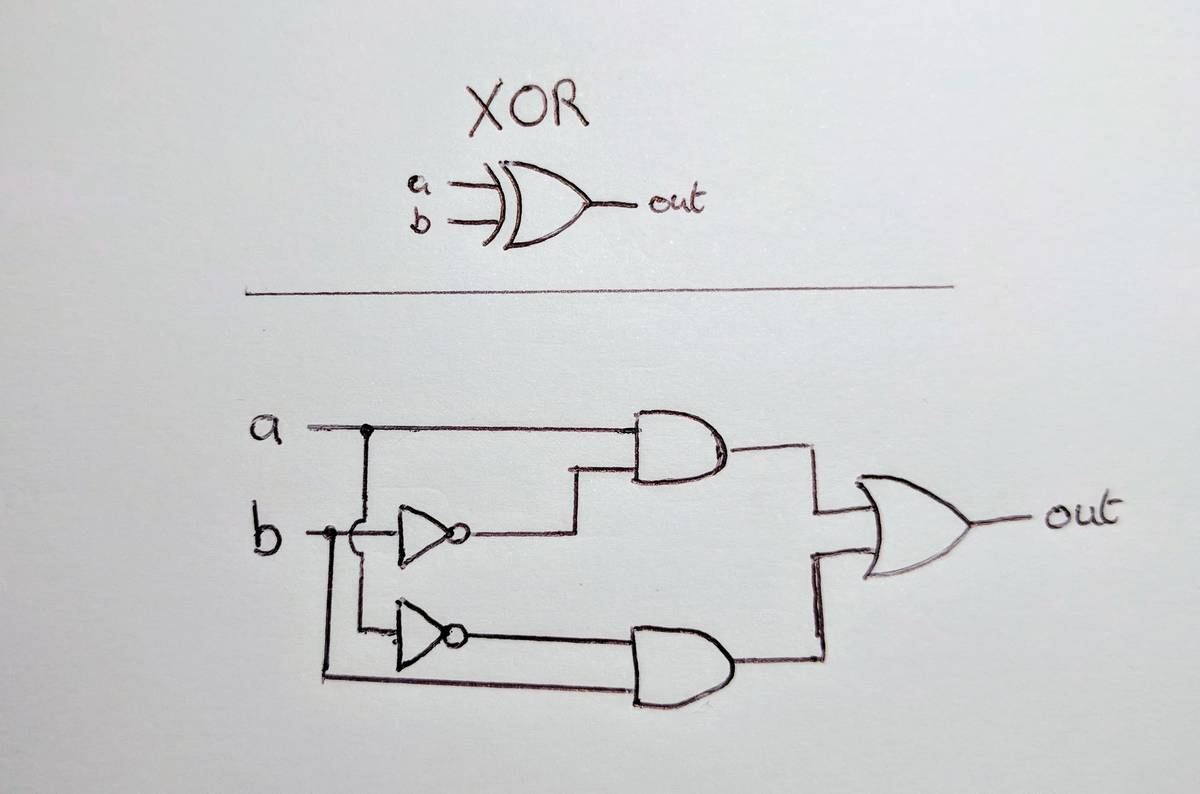 XOR
a
b
out
a
b
out